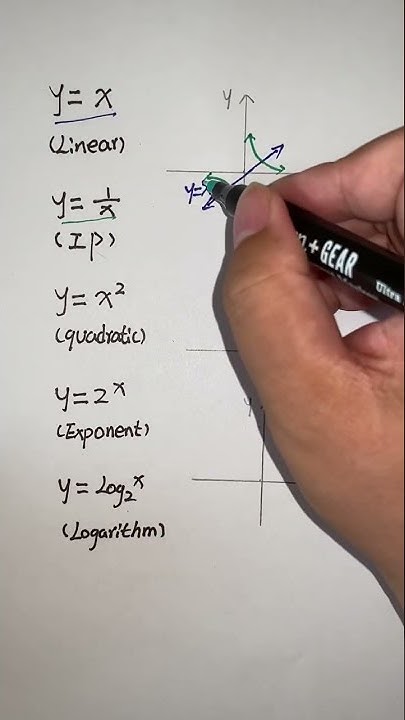 y = x
(Linear)
y = 1/x
(IP)
y = x²
(quadratic)
y = 2ˣ
(Exponent)
y = Log₂ˣ
(Logarithm)
y
y=
+ GEAR
Ultra
y